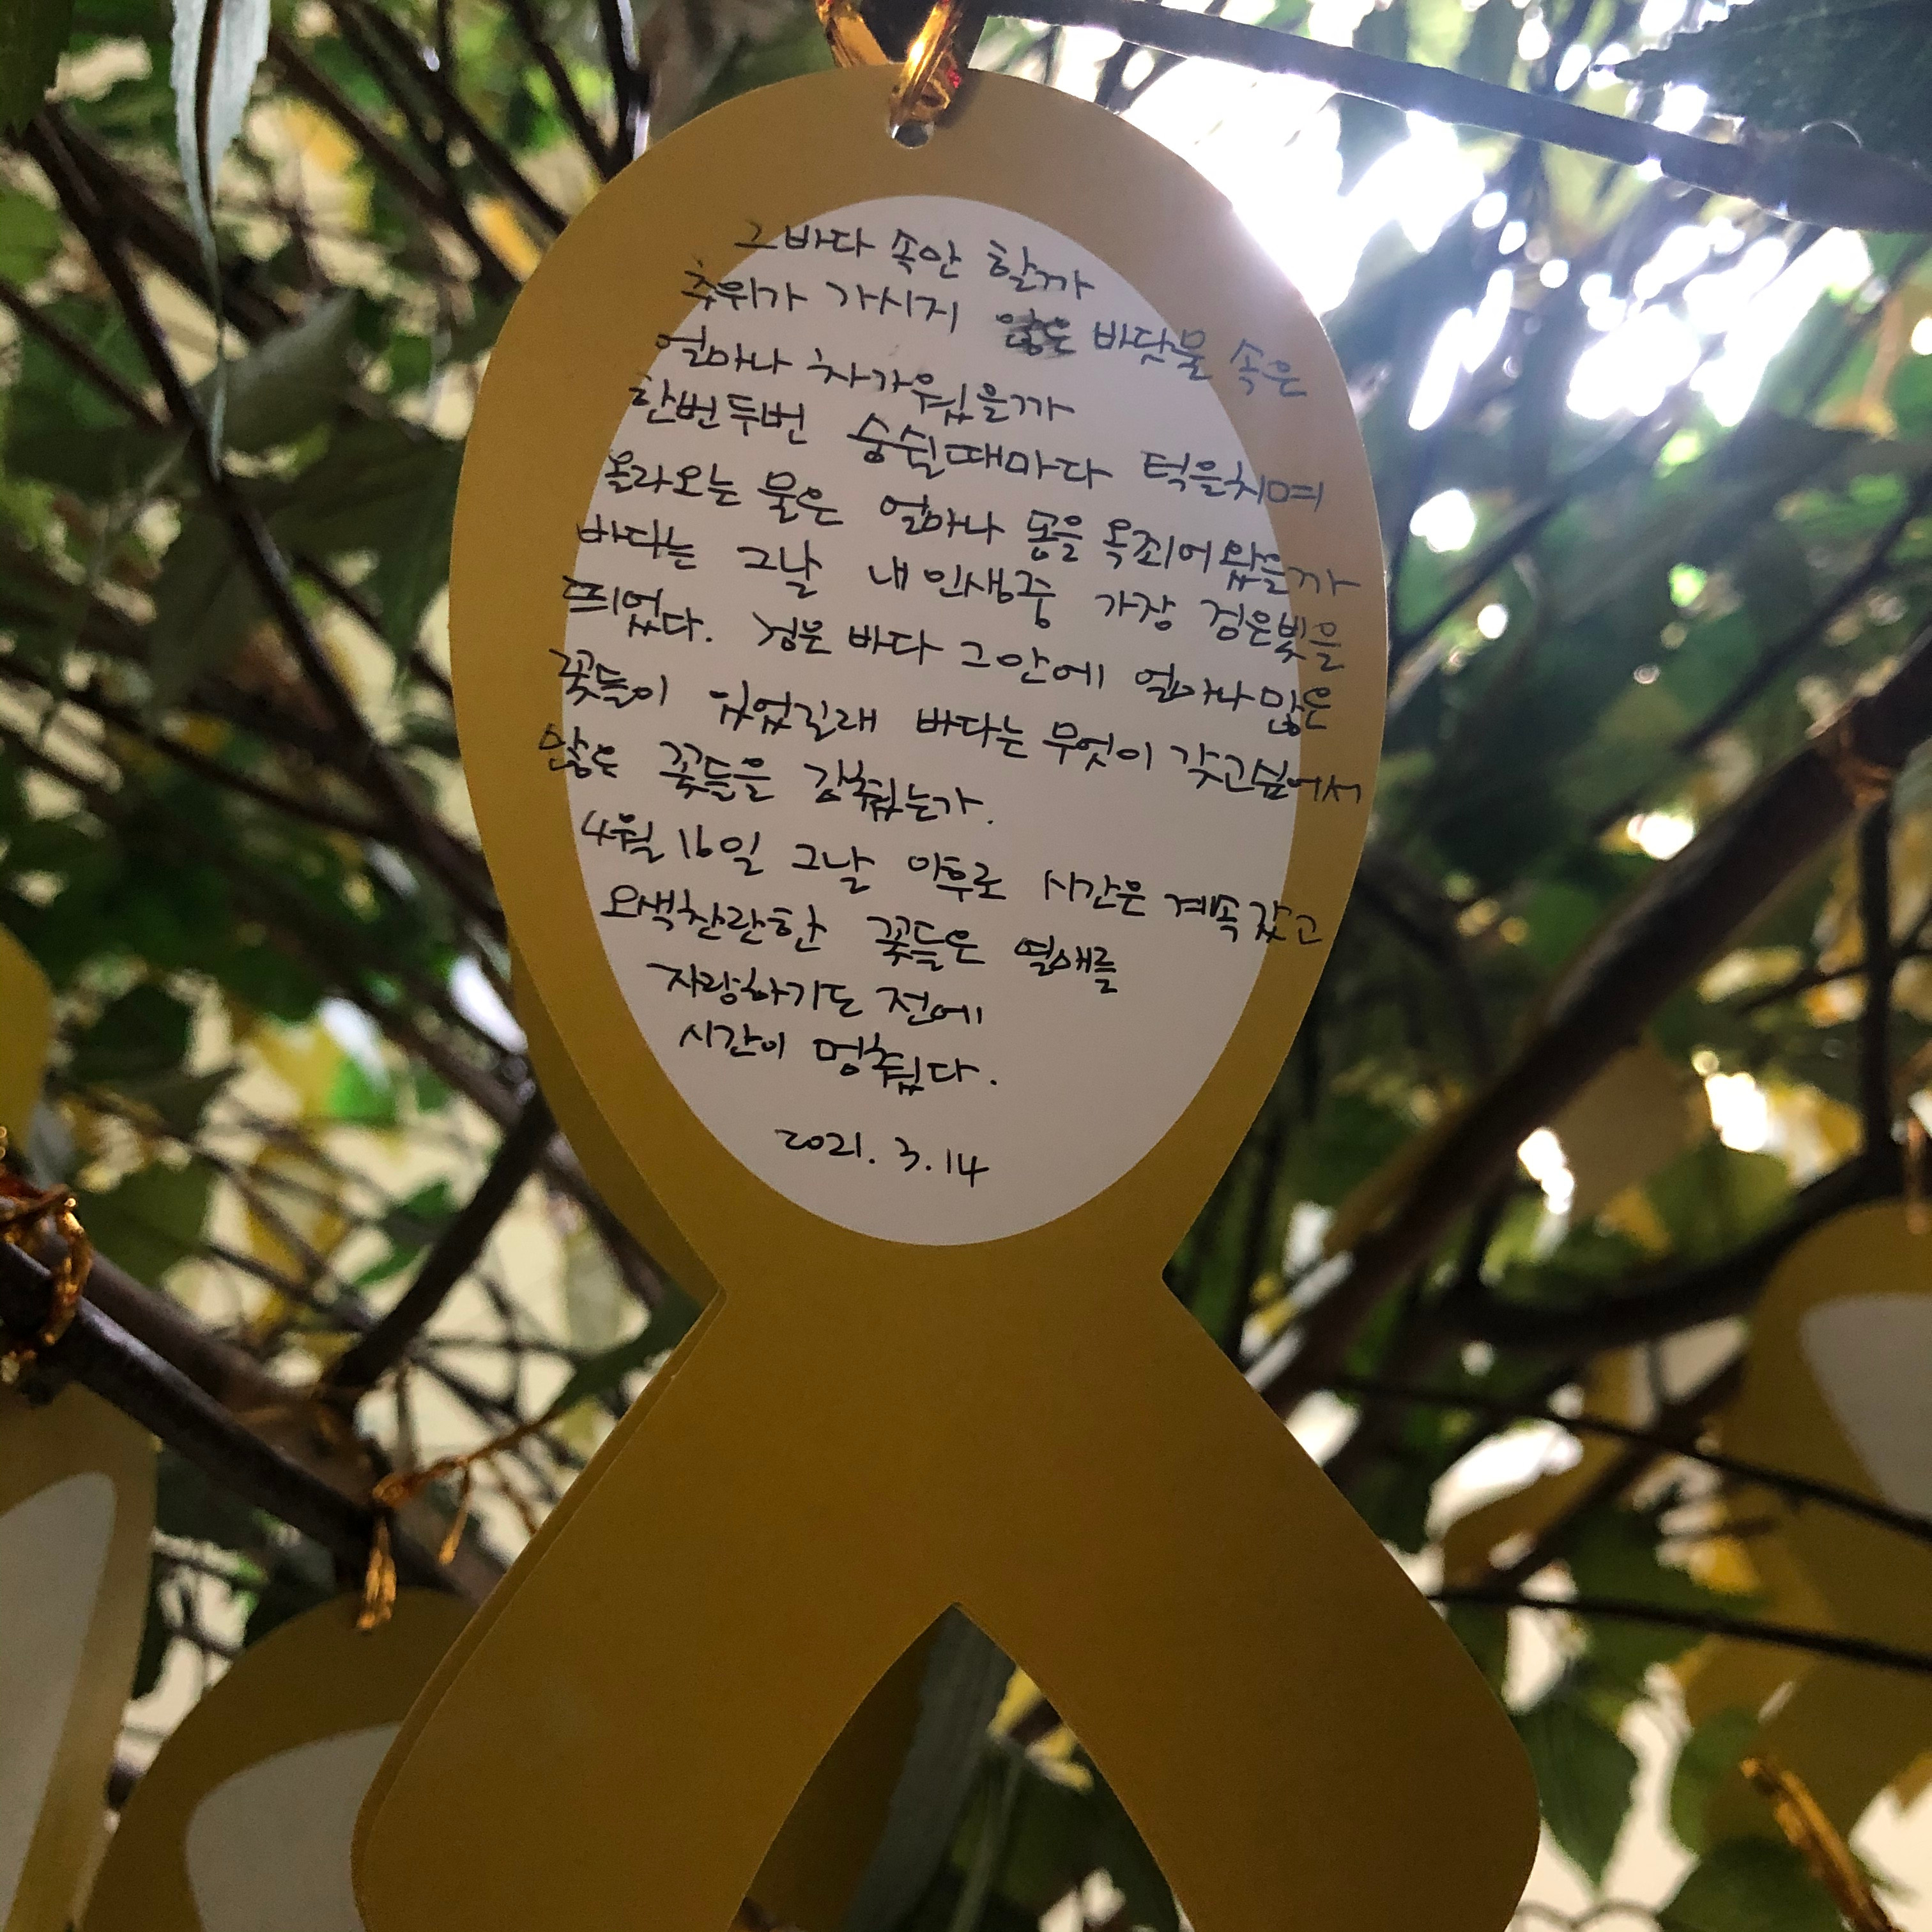 그바다 속안 할까
추위가 가시지 않은 바닷물 속은
얼마나 차가웠을까
한번두번 숨쉴때마다 턱을치며
올라오는 물은 얼마나 몸을 옥죄어왔을까
바다는 그날 내인생중 가장 검은빛을
띄었다. 검은 바다 그안에 얼마나많은
꽃들이 있었길래 바다는 무엇이 갖고싶어서
많은 꽃들을 감췄는가.
4월 16일 그날 이후로 시간은 계속갔고
오색찬란한 꽃들은 열매를
자랑하기도 전에
시간이 멈췄다.
2021. 3. 14